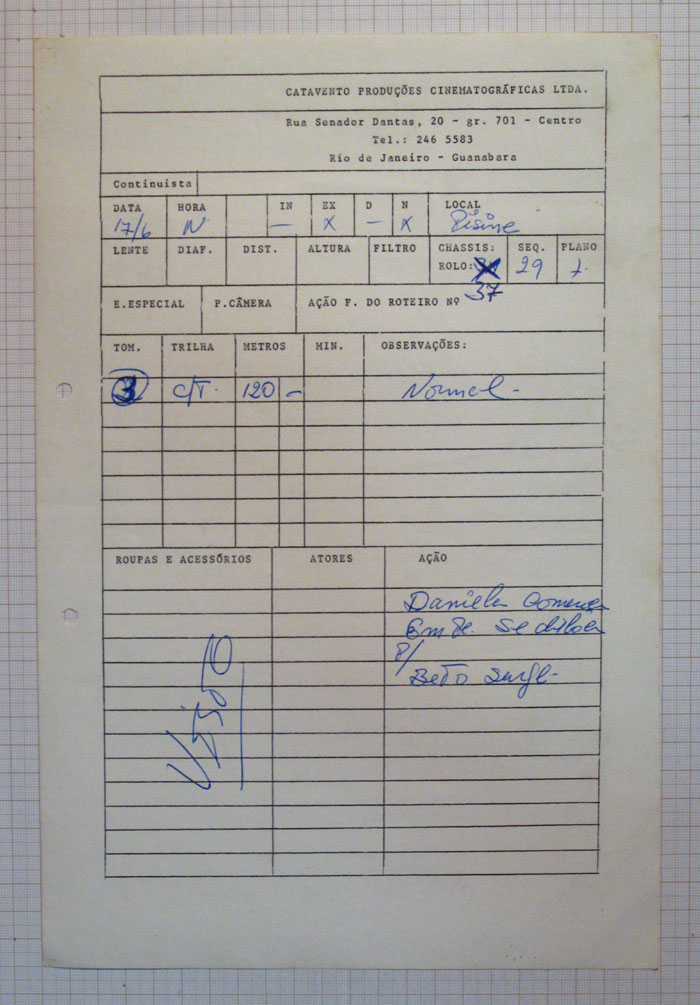 CATAVENTO PRODUÇÕES CINEMATOGRÁFICAS LTDA.
Rua Senador Dantas, 20 - gr. 701 - Centro
Tel.: 246 5583
Rio de Janeiro - Guanabara
Continuista
DATA HORA IN EX D N LOCAL
17/6 N — X — X
LENTE DIAF. DIST. ALTURA FILTRO CHASSIS: SEQ. PLANO
ROLO: 29
37
E.ESPECIAL P.CÂMERA AÇÃO F. DO ROTEIRO Nº
TOM. TRILHA METROS MIN. OBSERVAÇÕES:
3 C/T. 120 - Normal -
ROUPAS E ACESSÓRIOS ATORES AÇÃO
Daniela
Se
P/
Beto
VISTO